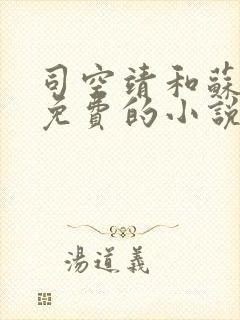 司空靖和蘇
免費的小說
湯道義